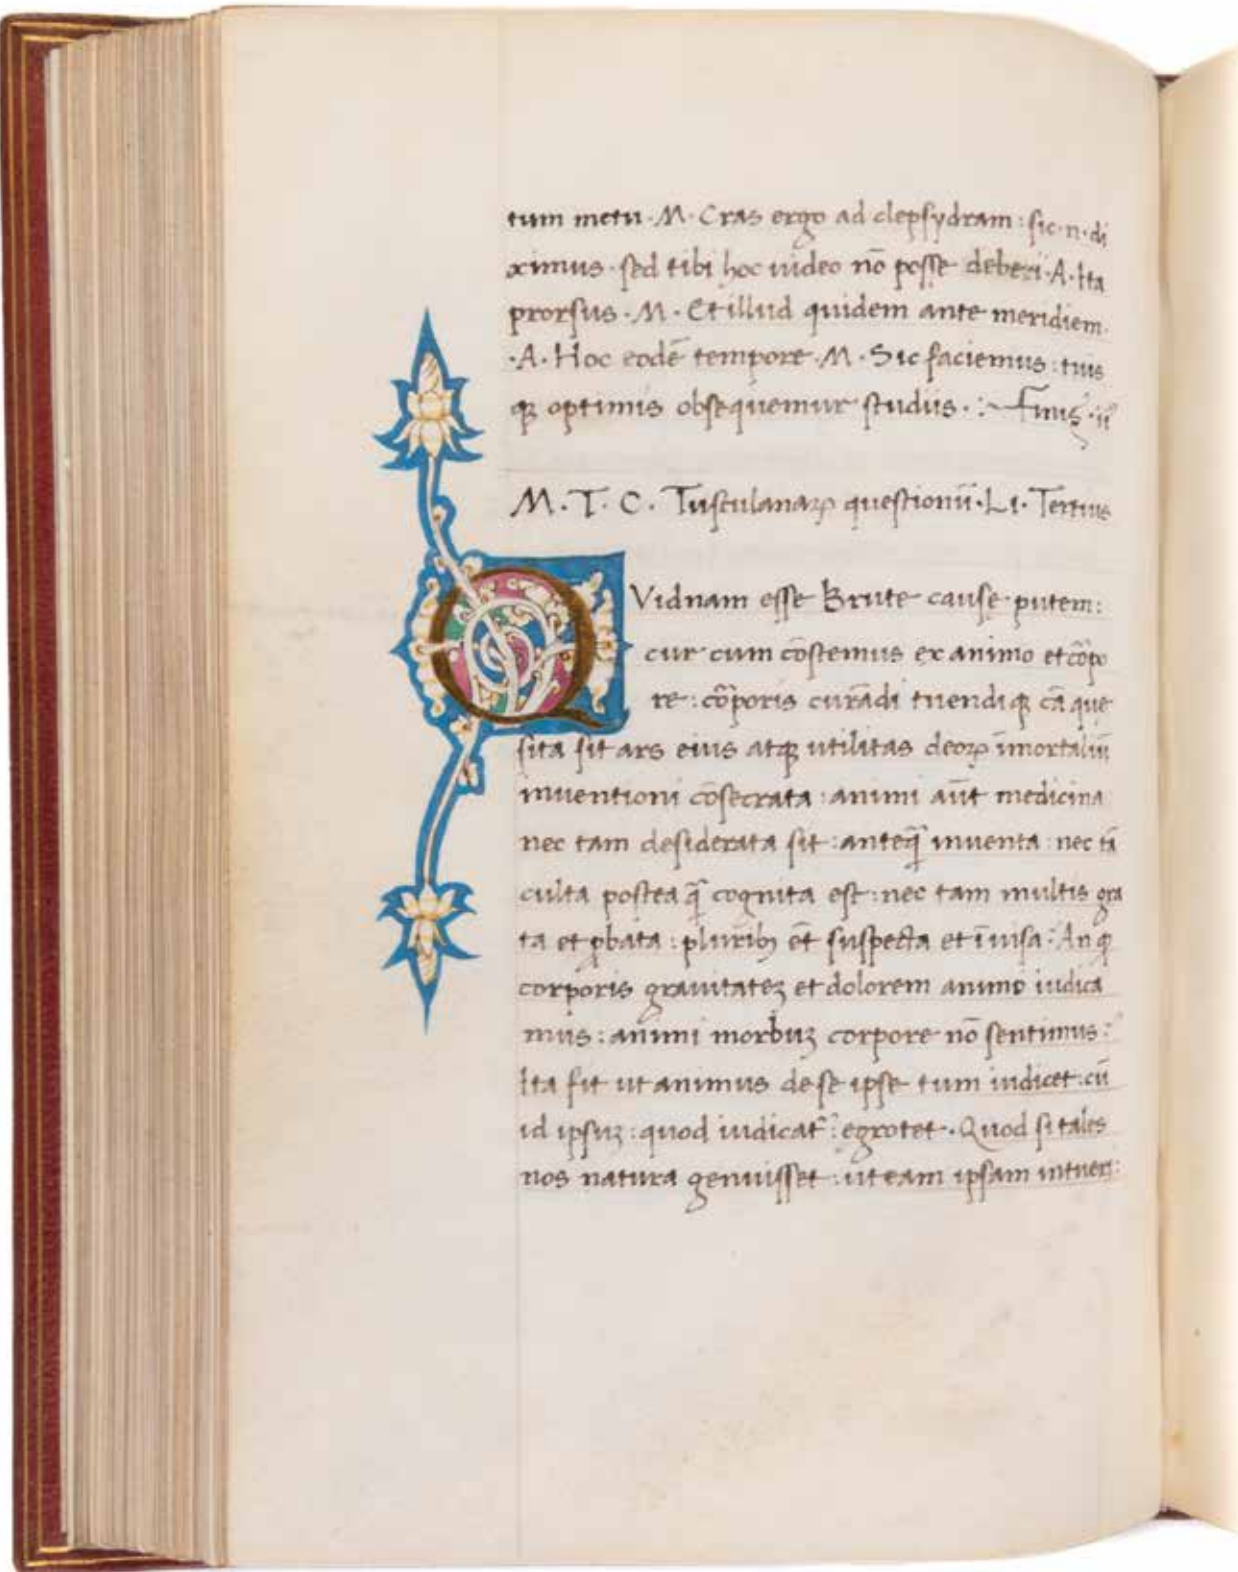 tum metu · M · Cras ergo ad clepsydram : sic · n · di
ximus · sed tibi hoc uideo nō posse deberi · A · Ita
prorsus · M · Et illud quidem ante meridiem ·
· A · Hoc eodē tempore · M · Sic faciemus : tuis
qꝫ optimis obsequemur studiis · :~ Finis · ii
M · T · C · Tusculanaꝝ questionū · Li · Tertius
QVidnam esse Brute cause putem :
cur cum cōstemus ex animo et cōrpo
re : cōrporis curādi tuendiqꝫ cā que
sita sit ars eius atqꝫ utilitas deoꝝ īmortaliū
inuentioni cōsecrata : animi aūt medicina
nec tam desiderata sit : anteq̄ inuenta : nec tā
culta postea q̄ cognita est : nec tam multis gra
ta et ꝓbata : pluribꝫ ēt suspecta et īuisa : An ꝙ
corporis grauitateꝫ et dolorem animo iudica
mus : animi morbuꝫ corpore nō sentimus :
Ita fit ut animus de se ipse tum iudicet : cū
id ipsuꝫ : quod iudicat᷑ : egrotet · Quod si tales
nos natura genuisset : ut eam ipsam intueri :